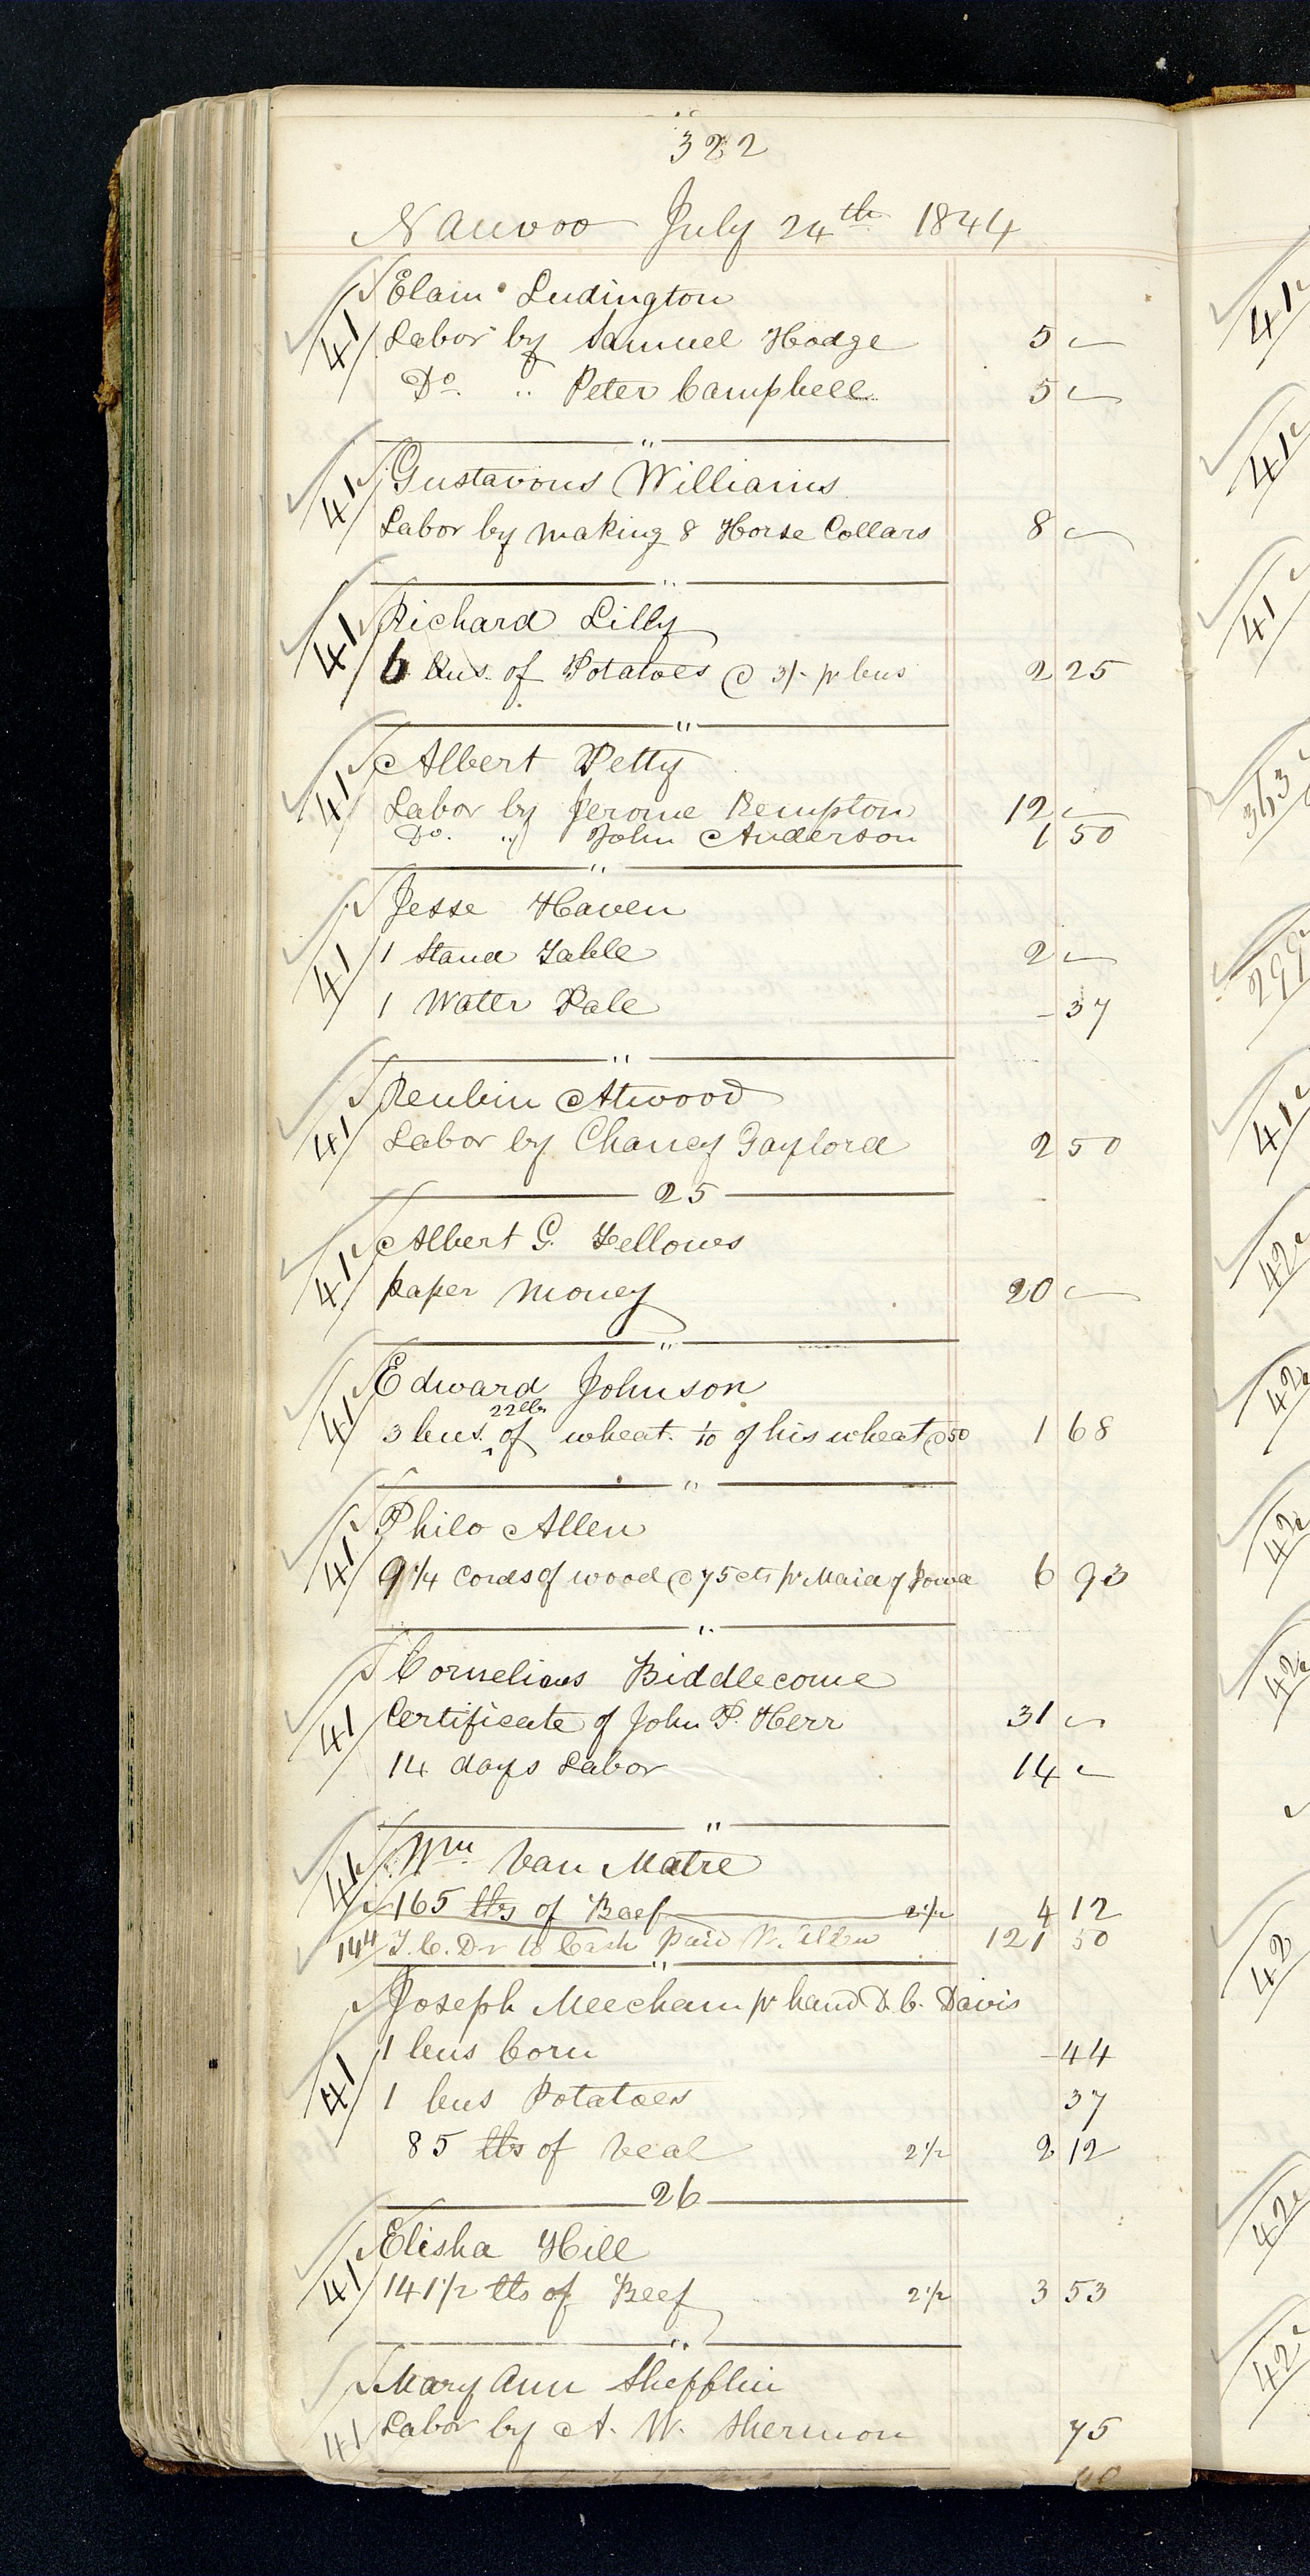 322
Nauvoo July 24th 1844
Elam Ludington
41 Labor by Samuel Hodge 5 —
Do. " Peter Campbell 5 —
"
41 Gustavous Williams
Labor by making 8 Horse Collars 8 —
"
41 Richard Lilly
6 bus. of Potatoes @ 3/- pr bus 2 25
"
41 Albert Petty
Labor by Jerome Kempton 12 —
Do. " John Anderson 1 50
"
Jesse Haven
41 1 Stand Table 2 —
1 Water Pale - 37
"
Reubin Atwood
41 Labor by Chancy Gaylord 2 50
25
41 Albert G. Fellows
paper money 20 —
"
41 Edward Johnson
22 lbs
3 bus. of wheat. 1/10 of his wheat @ 50 1 68
"
Philo Allen
41 9 1/4 Cords of wood @ 75 cts pr Maid of Iowa 6 93
"
Cornelious Biddlecome
41 Certificate of John P. Herr 31 —
14 days Labor 14 —
"
41 Wm Van Matre
165 lbs of Beef 2 1/2 4 12
144 T. C. Dr to Cash paid W. Allen 121 50
"
Joseph Meecham pr hand D. C. Davis
1 bus Corn - 44
41 1 bus Potatoes 37
85 lbs of Veal 2 1/2 2 12
26
Elisha Hill
41 141 1/2 lbs of Beef 2 1/2 3 53
"
Mary Ann Shefflin
41 Labor by A. W. Shermon 75
41
41
41
363
299
41
42
42
42
42
42
42
42